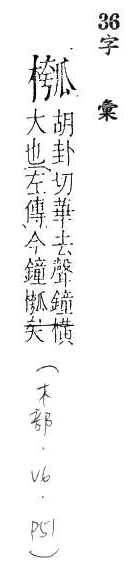 36字彙
槬
胡卦切華去聲鐘橫
大也左傳今鐘槬矣
(木部.V6.P51)